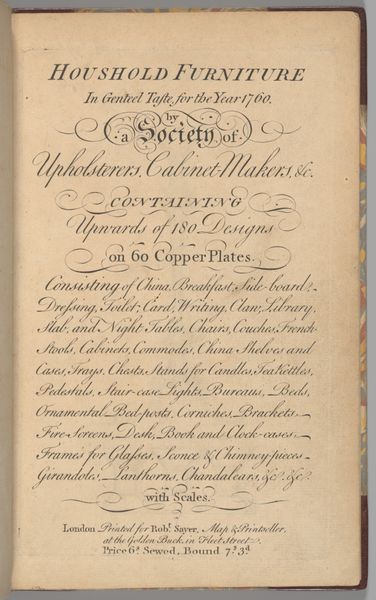 HOUSHOLD FURNITURE
In Genteel Taste, for the Year 1760.
by
a Society of
Upholsterers, Cabinet-Makers, &c.
CONTAINING
Upwards of 180 Designs
on 60 Copper Plates.
Consisting of China, Breakfast, Side-board,
Dressing, Toilet, Card, Writing, Claw, Library,
Slab, and Night Tables, Chairs, Couches, French-
Stools, Cabinets, Commodes, China Shelves and
Cases, Trays, Chests, Stands for Candles, Tea Kettles,
Pedestals, Stair-case Lights, Bureaus, Beds,
Ornamental Bed-posts, Corniches, Brackets,
Fire-Screens, Desk, Book and Clock-cases,
Frames for Glasses, Sconce & Chimney-pieces
Girandoles, Lanthorns, Chandalears, &c. &c.
with Scales.
London Printed for Robt. Sayer, Map & Printseller,
at the Golden Buck, in Fleet Street.
Price 6s. Sewed, Bound 7s. 3d.